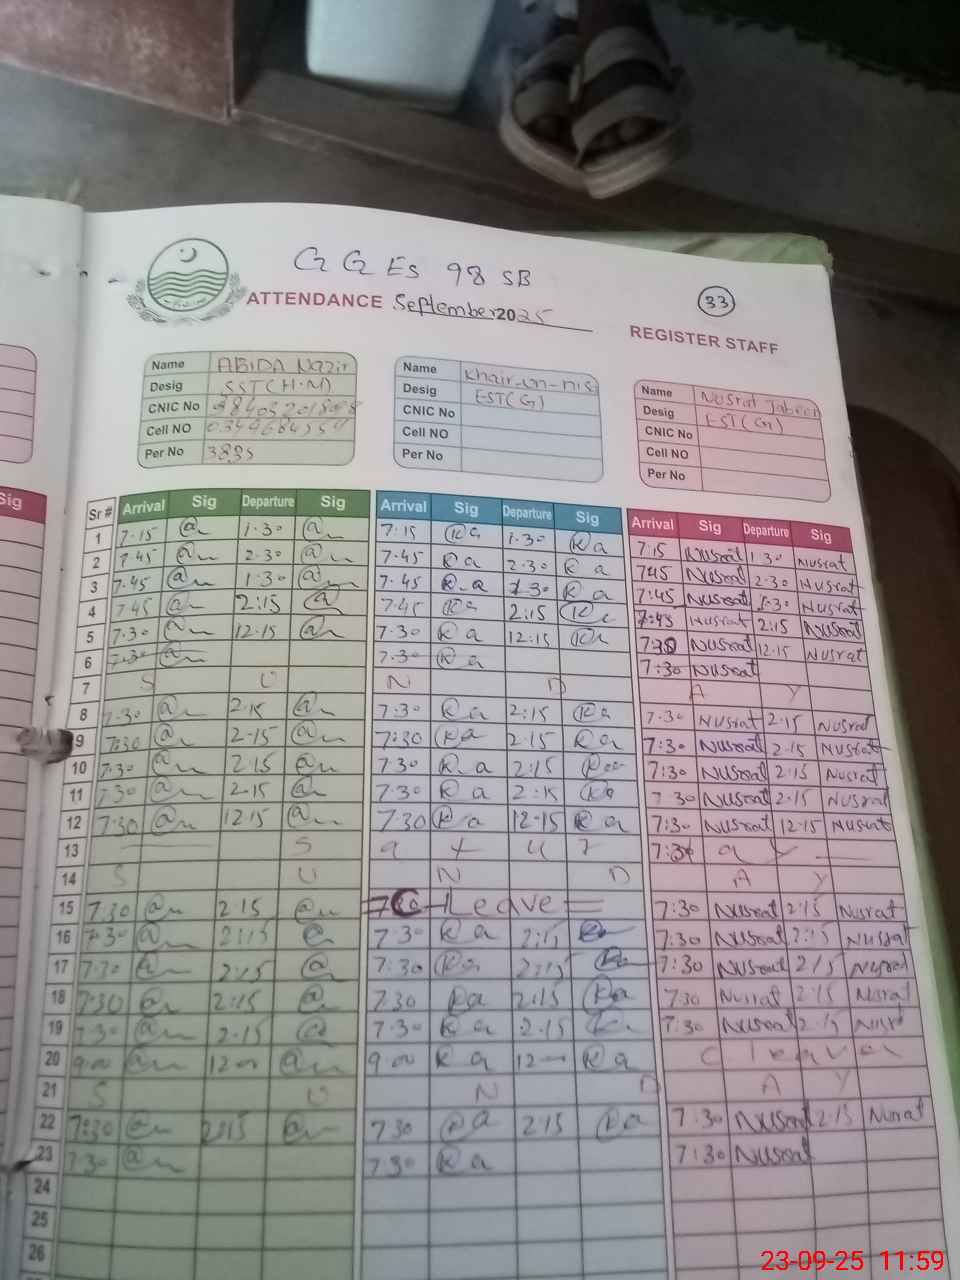 G G Es 98 SB
33
ATTENDANCE September 2025
REGISTER STAFF
Name ABIDA Nazir
Desig SST(H.M)
CNIC No
Cell NO
Per No
Name Khair-un-nis
Desig EST(G)
CNIC No
Cell NO
Per No
Name Nusrat Jabeen
Desig EST(G)
CNIC No
Cell No
Per No
Sig
Sr # Arrival Sig Departure Sig Arrival Sig Departure Sig Arrival Sig Departure Sig
1 7.15 1.30 7.15 Ka 1.30 Ka 7:15 Nusrat 1.30 Nusrat
2 7.45 2.30 7.45 Ka 2.30 Ka 7.45 Nusrat 2.30 Nusrat
3 7.45 1.30 7.45 Ka 1.30 Ka 7:45 Nusrat 1.30 Nusrat
4 7.45 2:15 7.45 Ka 2:15 Ka 7.45 Nusrat 2:15 Nusrat
5 7.30 12.15 7.30 Ka 12:15 Ka 7.30 Nusrat 12.15 Nusrat
6 7.30 7.30 Ka 7:30 Nusrat
7 S U N D A Y
8 7.30 2.15 7.30 Ka 2:15 Ka 7.30 Nusrat 2.15 Nusrat
9 7:30 2.15 7:30 Ka 2.15 Ka 7:30 Nusrat 2.15 Nusrat
10 7.30 2.15 7.30 Ka 2:15 7:30 Nusrat 2.15 Nusrat
11 7.30 2.15 7.30 Ka 2:15 Ka 7.30 Nusrat 2.15 Nusrat
12 7.30 12.15 7.30 Ka 12.15 Ka 7:30 Nusrat 12.15 Nusrat
13 S a t u r 7:30 a y
14 S U N D A Y
15 7.30 2.15 Leave 7:30 Nusrat 2:15 Nusrat
16 7.30 2:15 7.30 Ka 2:15 7:30 Nusrat 2:15 Nusrat
17 7.30 2:15 7:30 Ka 2:15 7:30 Nusrat 2:15 Nusrat
18 7:30 2:15 7.30 Ka 2:15 Ka 7.30 Nusrat 2:15 Nusrat
19 7.30 2.15 7.30 Ka 2.15 7:30 Nusrat 2.15
20 9.00 12.00 9.00 Ka 12.00 Ka C leave
21 S U N D A Y
22 7:30 2:15 7.30 Ka 2:15 Ka 7:30 Nusrat 2:15 Nusrat
23 7.30 7.30 Ka 7:30 Nusrat
24
25
26
23-09-25 11:59